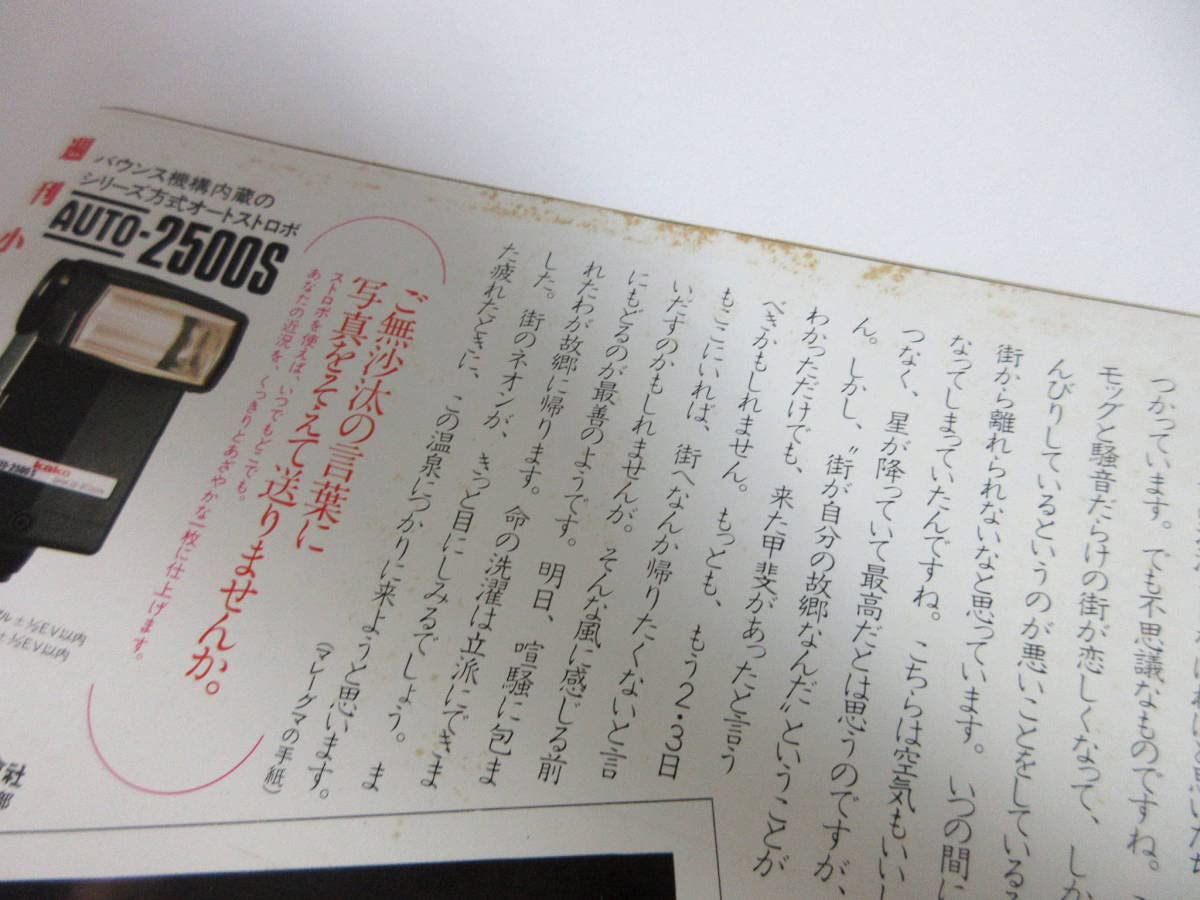 つかっています。でも不思議なものですね。
モッグと騒音だらけの街が恋しくなって、しか
んびりしているというのが悪いことをしている
街から離れられないなと思っています。いつの間に
なってしまっていたんですね。こちらは空気もいいし
つなく、星が降っていて最高だとは思うのですが、
ん。しかし、〝街が自分の故郷なんだ〟ということが
わかっただけでも、来た甲斐があったと言う
べきかもしれません。もっとも、もう2・3日
もここにいれば、街へなんか帰りたくないと言
いだすのかもしれませんが。そんな風に感じる前
にもどるのが最善のようです。明日、喧騒に包ま
れたわが故郷に帰ります。命の洗濯は立派にできま
した。街のネオンが、きっと目にしみるでしょう。ま
た疲れたときに、この温泉につかりに来ようと思います。
(マレーグマの手紙)
ご無沙汰の言葉に
写真をそえて送りませんか。
ストロボを使えば、いつでもどこでも。
あなたの近況を、くっきりとあざやかな一枚に仕上げます。
バウンス機構内蔵の
シリーズ方式オートストロボ
AUTO-2500S
kako
週刊小
ル±½EV以内
±½EV以内
会社
郎